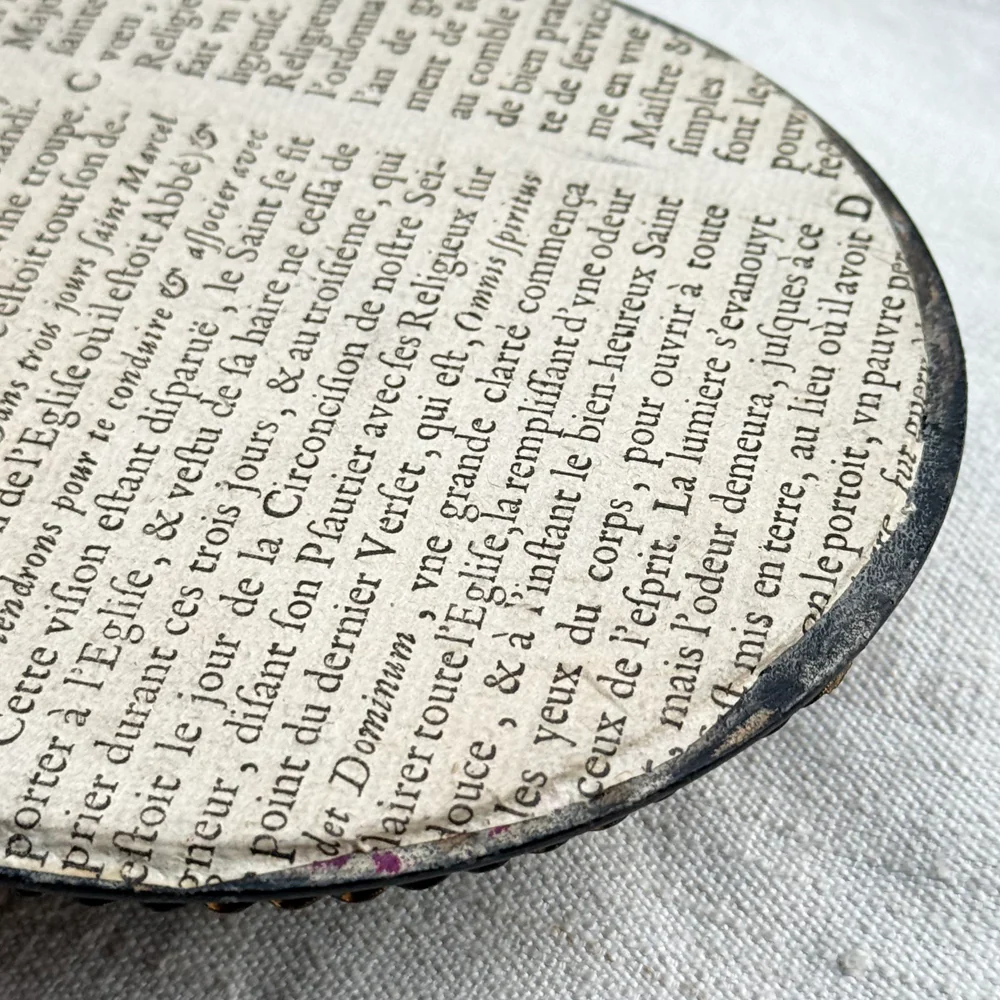 troupe.
estoit tout son de.
trois jours saint Marcel
de l'Eglise où il estoit Abbé) &
viendrons pour te conduire & associer avec
Cette vision estant disparuë, le Saint se fit
porter à l'Eglise, & vestu de sa haire ne cessa de
prier durant ces trois jours, & au troisiéme, qui
estoit le jour de la Circoncision de nostre Sei-
gneur, disant son Psautier avec ses Religieux sur
point du dernier Verset, qui est, Omnis spiritus
det Dominum, vne grande clarté commença
lairer toute l'Eglise, la remplissant d'vne odeur
douce, & à l'instant le bien-heureux Saint
les yeux du corps, pour ouvrir à toute
ceux de l'esprit. La lumiere s'evanouyt
, mais l'odeur demeura, jusques à ce
st mis en terre, au lieu où il avoit
en le portoit, vn pauvre per
sur
C
D
Majo
sainte
vœu,
Religie
fait vn
ligeuse.
Religieux
l'ordonna
l'an de
ment de
au comble
de bien prat
te de servic
me en vne
Maistre &
simples
font les
pouv
fea